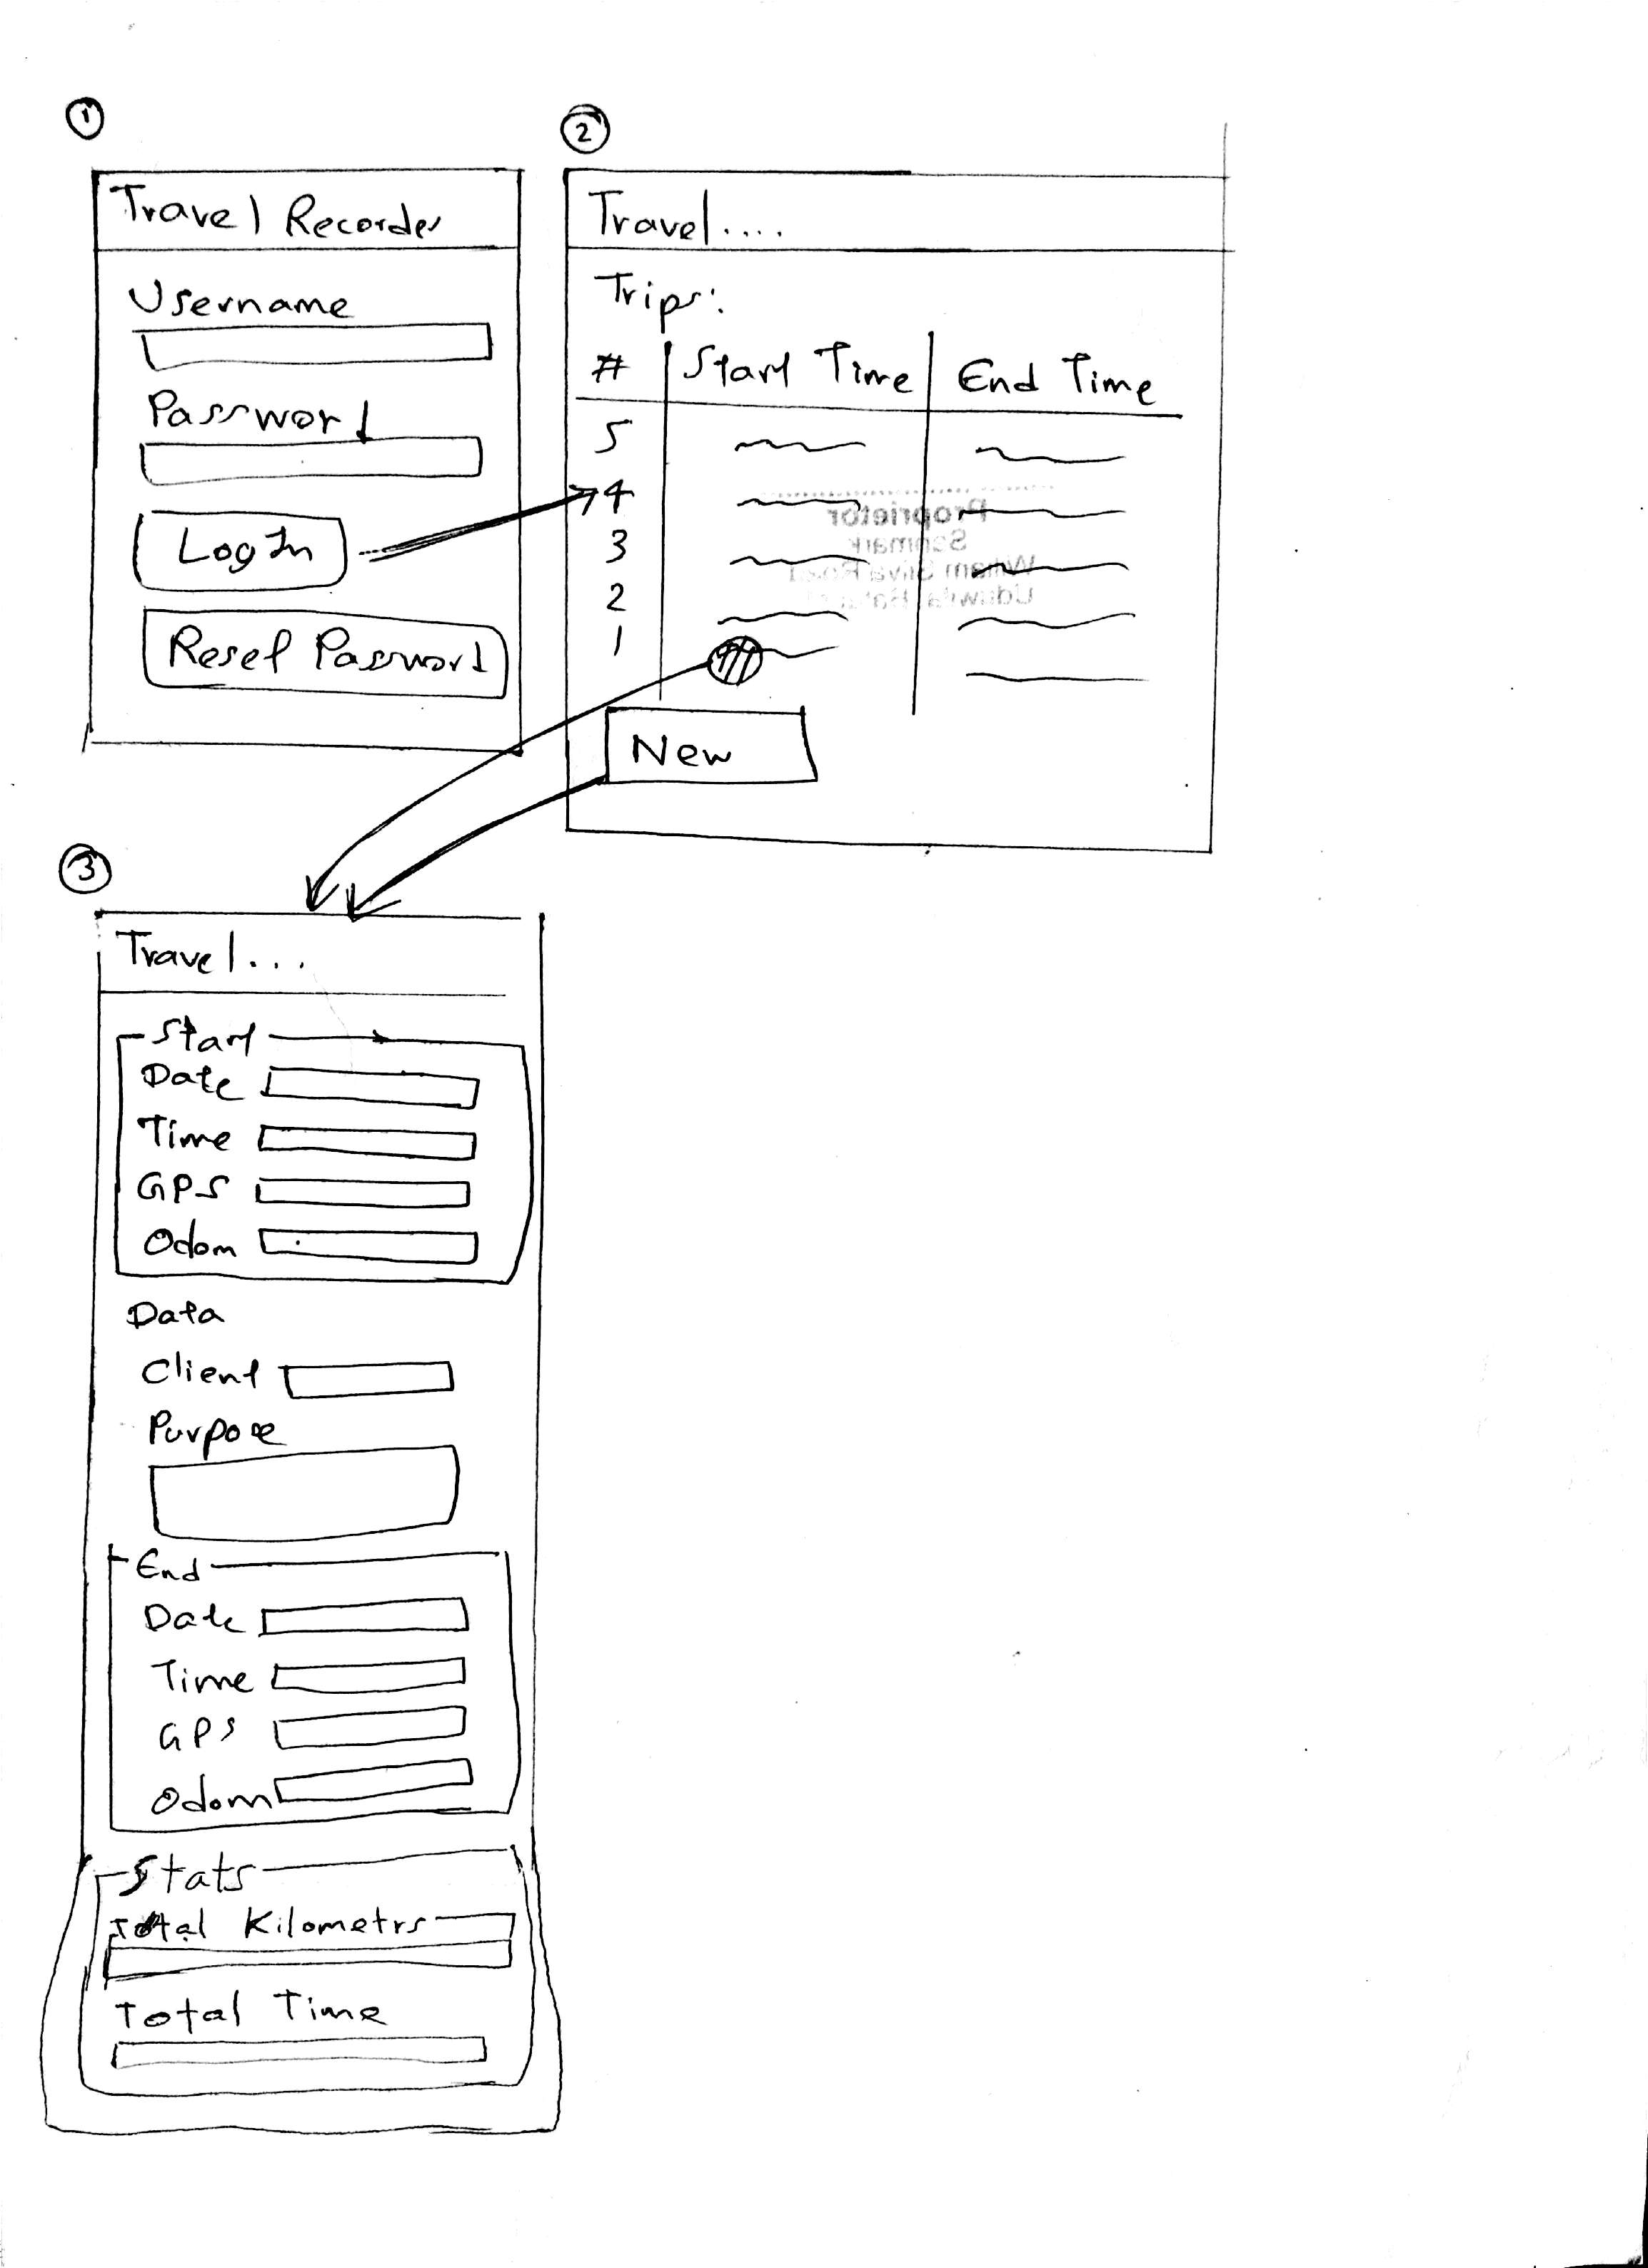 1
Travel Recorder
Username
Password
Log In
Reset Password
2
Travel....
Trips:
# Start Time End Time
5
4
3
2
1
New
Proprietor
3
Travel...
Start
Date
Time
GPS
Odom
Data
Client
Purpose
End
Date
Time
GPS
Odom
Stats
Total Kilometrs
Total Time